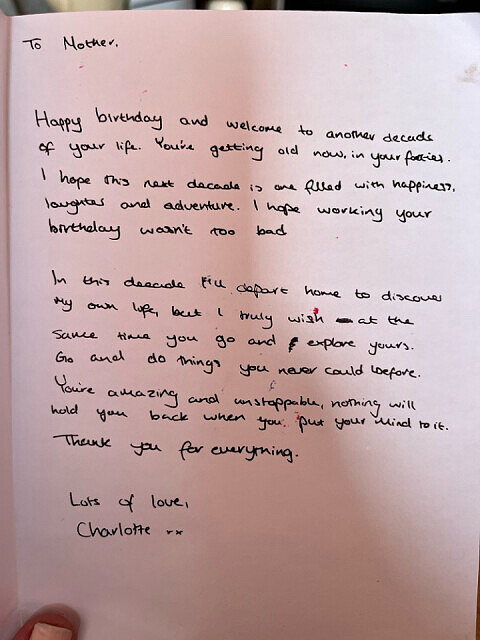 To Mother.
Happy birthday and welcome to another decade
of your life. You're getting old now, in your forties.
I hope this next decade is one filled with happiness,
laughter and adventure. I hope working your
birthday wasn't too bad
In this decade I'll depart home to discover
my own life, but I truly wish at the
same time you go and explore yours.
Go and do things you never could before.
You're amazing and unstoppable, nothing will
hold you back when you put your mind to it.
Thank you for everything.
Lots of love,
Charlotte xx